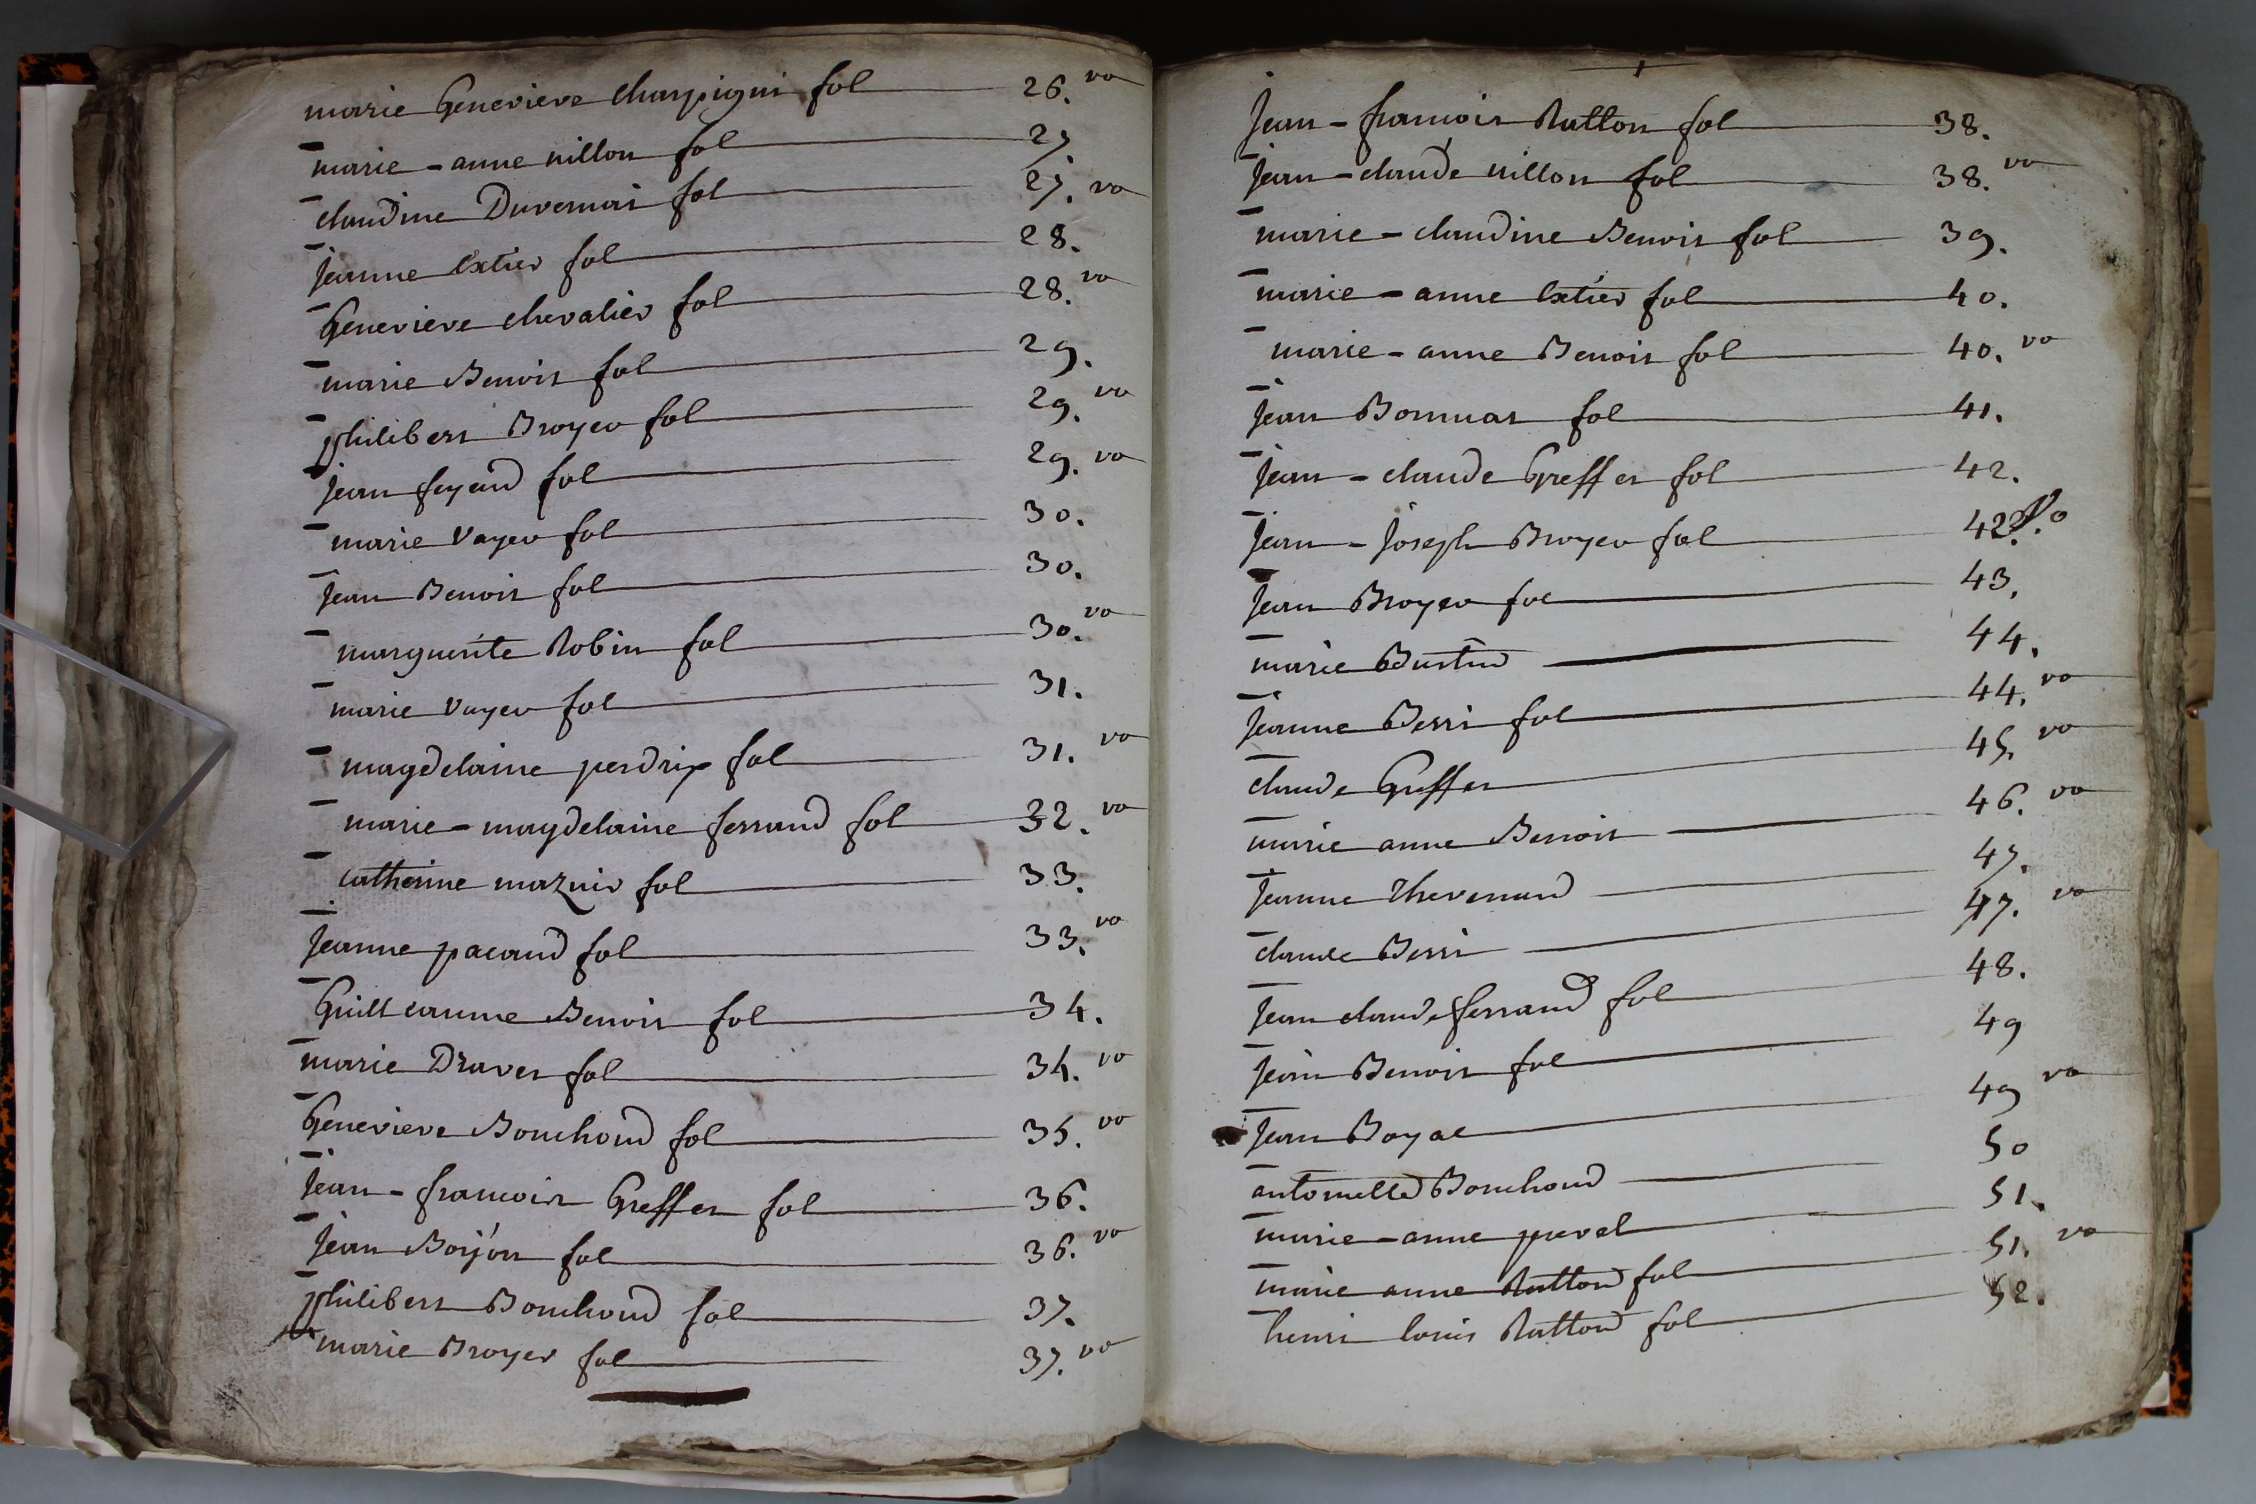 marie Genevieve Champigni fol 26. vo
marie - anne nillon fol 27.
claudine Duvernai fol 27. vo
jeanne Extier fol 28.
Genevieve chevalier fol 28. vo
marie Benoit fol 29.
philibert Broyer fol 29. vo
jean fayard fol 29. vo
marie Vayer fol 30.
jean Benoit fol 30.
marguerite Robin fol 30. vo
marie Vayer fol 31.
magdelaine perdrix fol 31. vo
marie - magdelaine ferrand fol 32. vo
catherine maznir fol 33.
jeanne pacaud fol 33. vo
Guillaume Benoit fol 34.
marie Dravet fol 34. vo
Genevieve Bouchoud fol 35. vo
jean - francois Greffet fol 36.
jean Boyon fol 36. vo
philibert Bouchoud fol 37.
marie Broyer fol 37. vo
jean - francois Rutton fol 38.
jean - claude nillon fol 38. vo
marie - claudine Benoit fol 39.
marie - anne Extier fol 40.
marie - anne Benoit fol 40. vo
jean Bonnat fol 41.
jean - claude Greffet fol 42.
jean - joseph Broyer fol 42. vo
jean Broyer fol 43.
marie 44.
jeanne Berri fol 44. vo
claude Greffet 45. vo
marie anne Benoit 46. vo
jeanne Thevenard 47.
claude Berri 47. vo
jean claude ferrand fol 48.
jean Benoit fol 49
jean Boyat 49 vo
antoinette Bouchoud 50
marie - anne prevel 51.
marie anne Rutton fol 51. vo
henri louis Rutton fol 52.